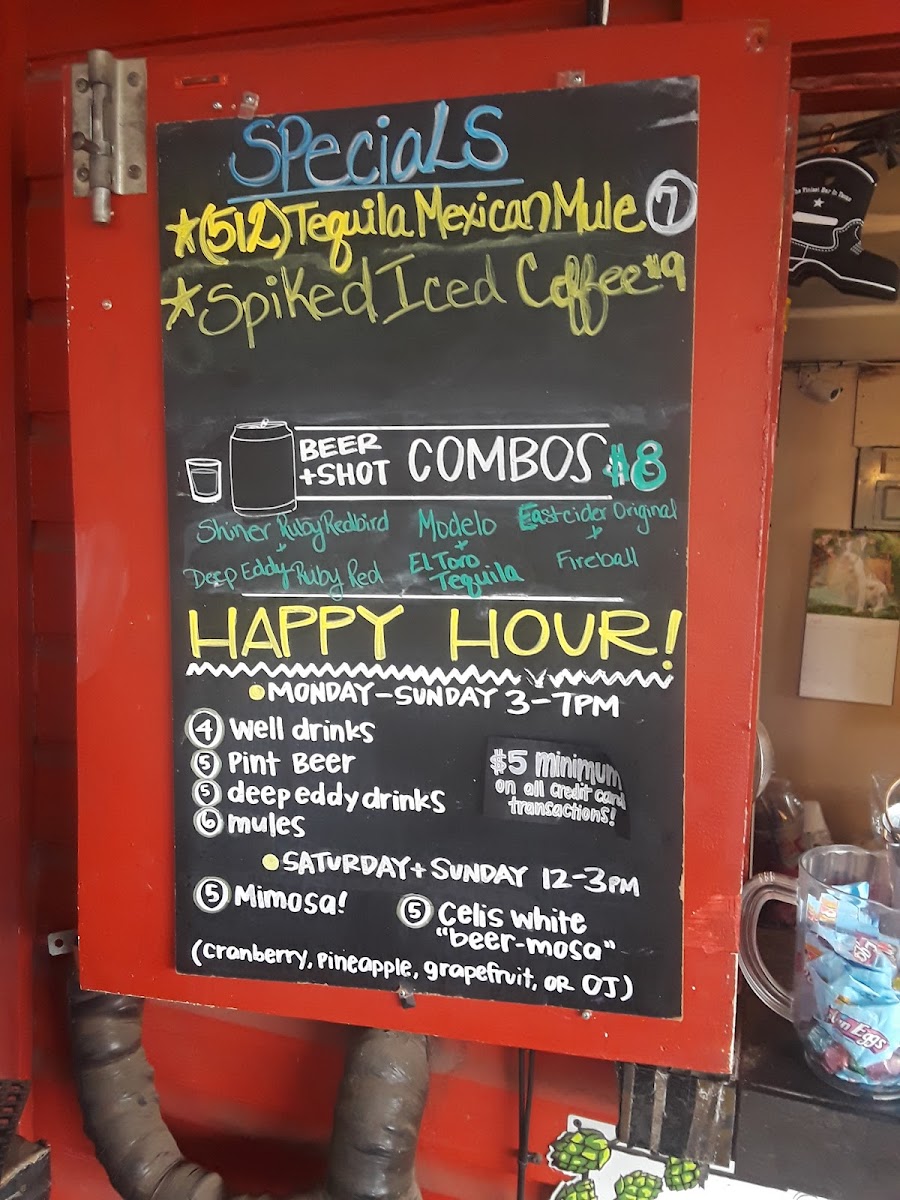 SPeciaLS
★(512) Tequila Mexican Mule 7
★Spiked Iced Coffee $9
BEER
+SHOT COMBOS $8
Shiner Ruby Redbird
+
Deep Eddy Ruby Red
Modelo
+
El Toro
Tequila
Eastcider Original
+
Fireball
HAPPY HOUR!
•MONDAY-SUNDAY 3-7PM
4 Well drinks
5 Pint Beer
5 deep eddy drinks
6 mules
$5 minimum
on all credit card
transactions!
•SATURDAY + SUNDAY 12-3PM
5 Mimosa!
5 Celis White
"beer-mosa"
(cranberry, pineapple, grapefruit, OR OJ)
The Tiniest Bar In Texas
Eggs